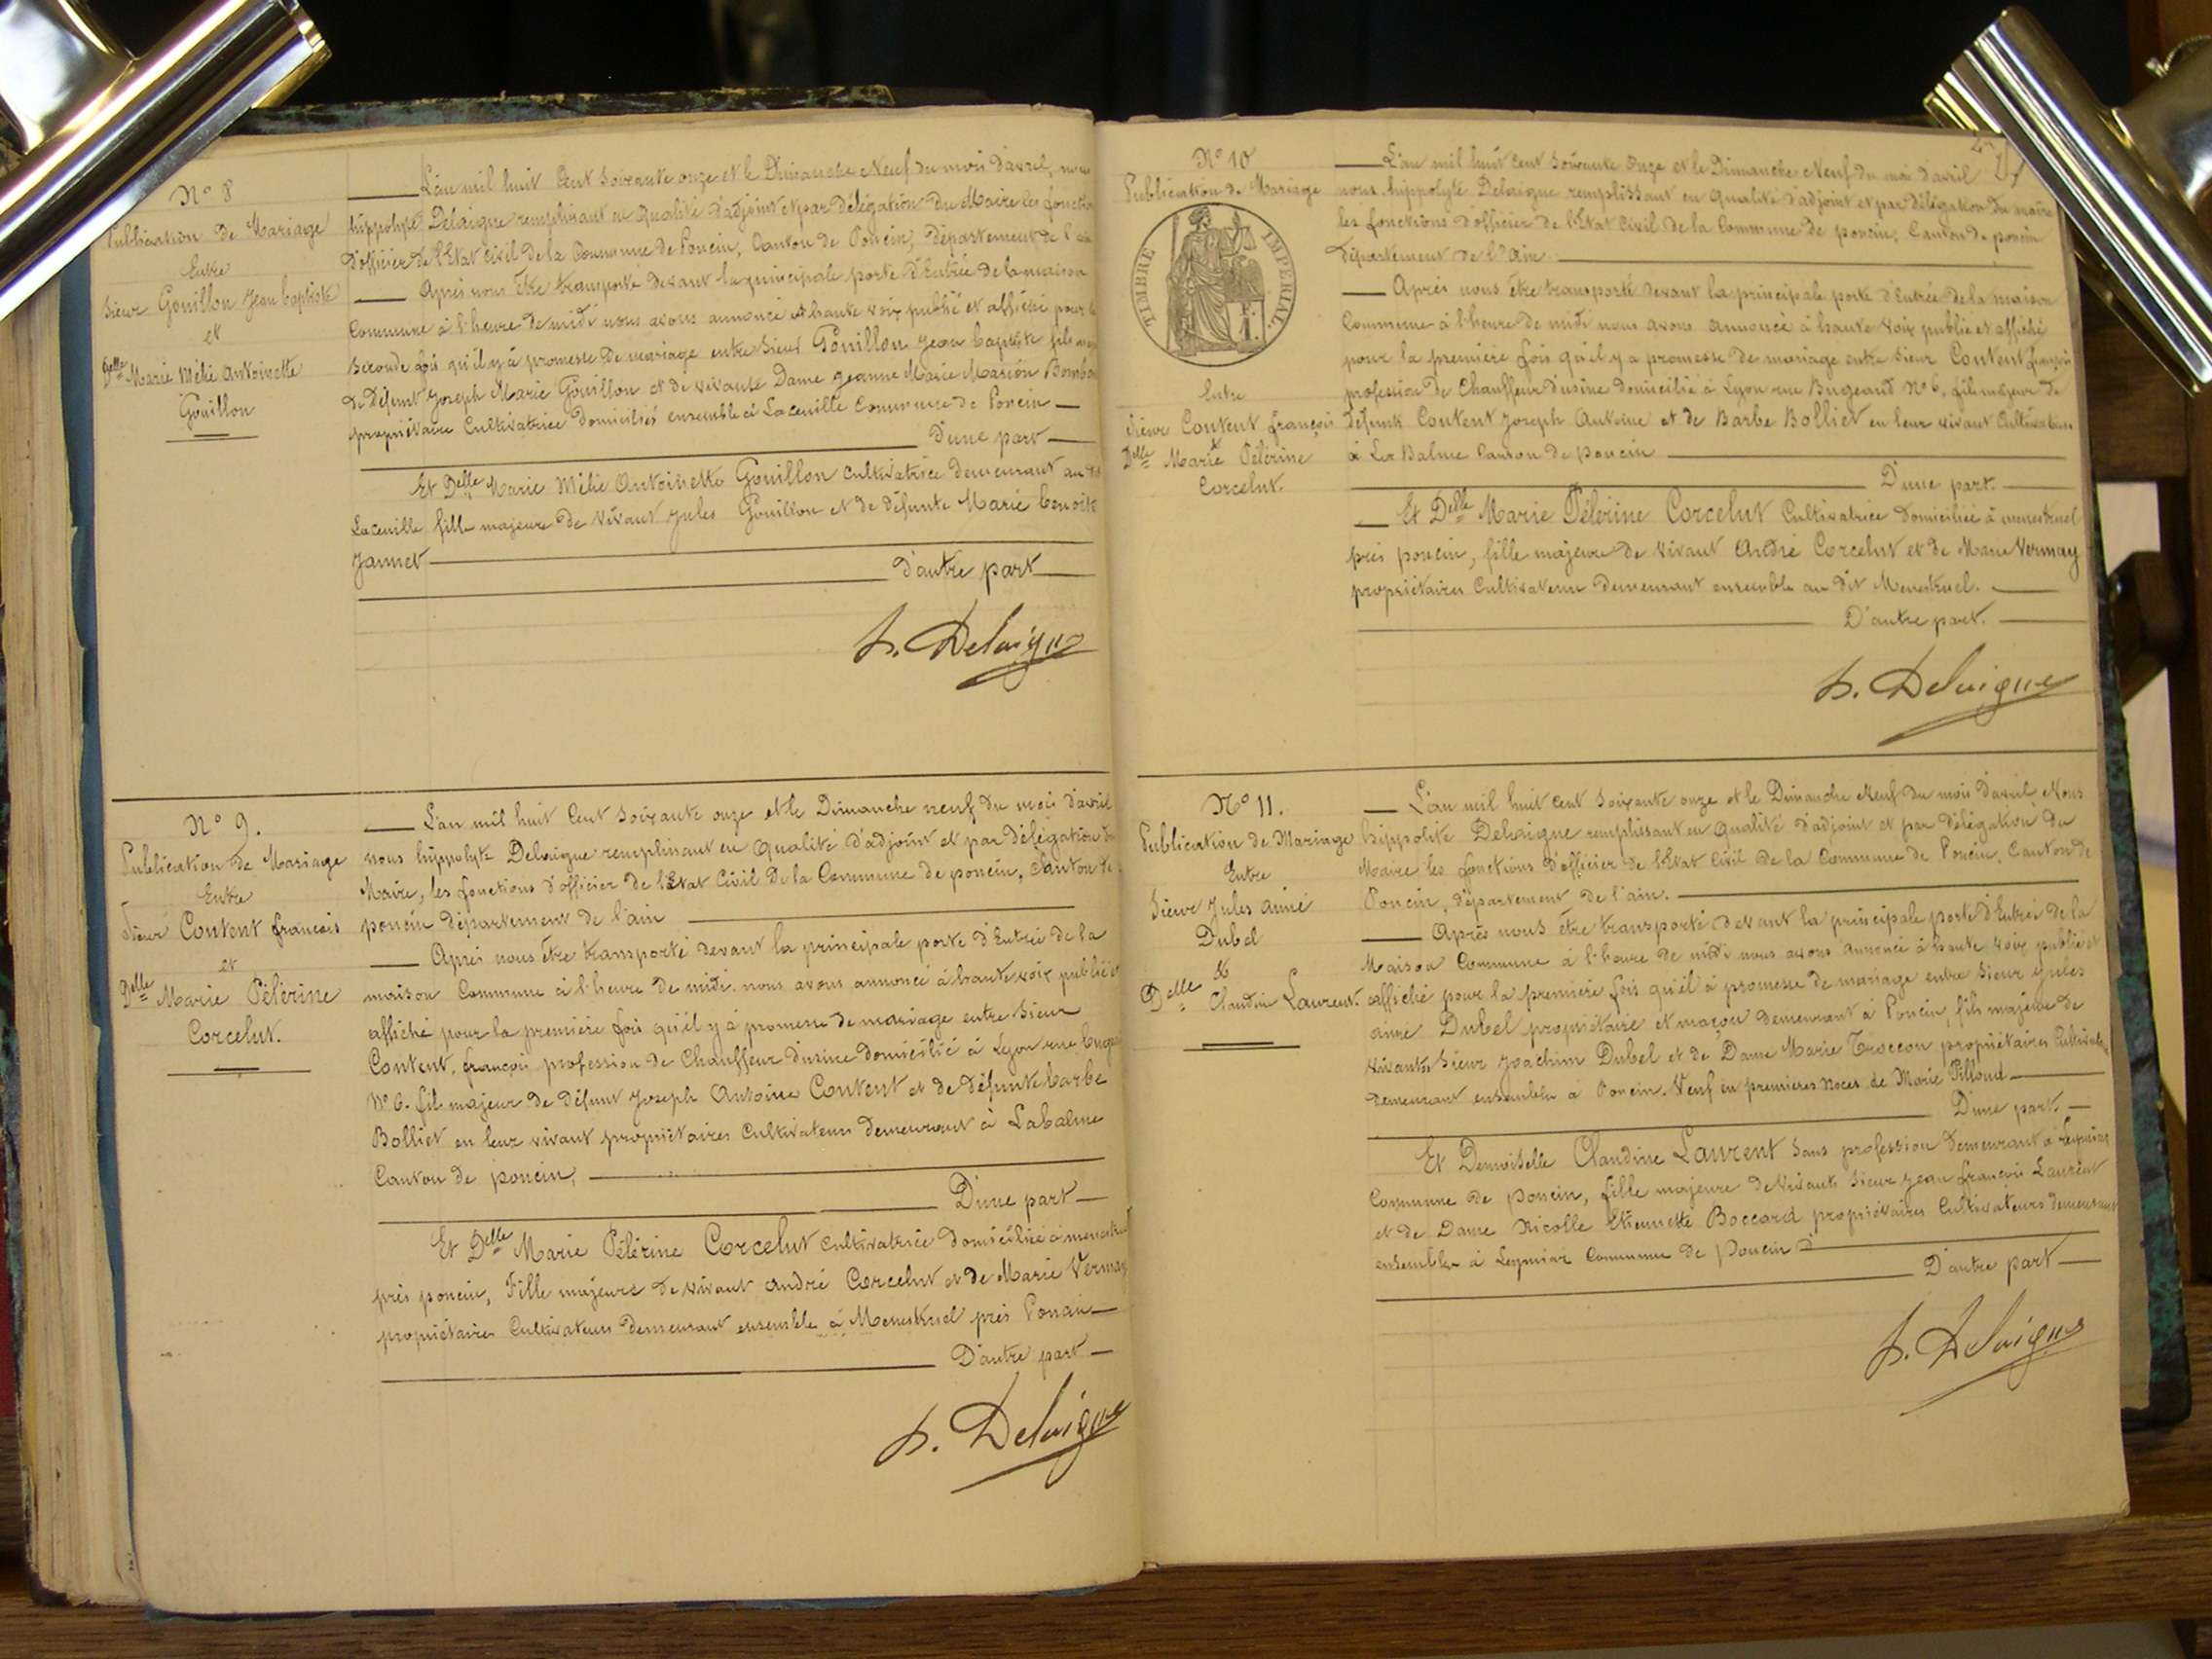 N° 8
Publication de Mariage
Entre
Sieur Gouillon Jean baptiste
et
Delle Marie Mélie Antoinette
Gouillon
L'an mil huit Cent soixante onze et le Dimanche Neuf du mois d'avril, nous
hippolyte Delaigne remplissant en qualité d'adjoint et par délégation du Maire les fonctions
d'officier de l'Etat Civil de la Commune de Poncin, Canton de Poncin, département de l'ain
Après nous être transporté devant la principale porte d'Entrée de la maison
Commune à l'heure de midi nous avons annoncé à haute voix publié et affiché pour la
seconde fois qu'il y à promesse de mariage entre Sieur Gouillon Jean baptiste fils
de Défunt Joseph Marie Gouillon et de vivante Dame Jeanne Marie Marion
propriétaire Cultivatrice Domiciliés ensemble à Laceuille Commune de Poncin
D'une part
Et Delle Marie Mélie Antoinette Gouillon Cultivatrice demeurant au dit
Laceuille fille majeure de Vivant Jules Gouillon et de défunte Marie benoite
Jannet
D'autre part
h. Delaigne
N° 9.
Publication de Mariage
Entre
Sieur Content françois
et
Delle Marie Pélérine
Corcelut.
L'an mil huit Cent soixante onze et le Dimanche neuf du mois d'avril
nous hippolyte Delaigne remplissant en qualité d'adjoint et par délégation du
Maire, les fonctions d'officier de l'Etat Civil de la Commune de poncin, Canton de
poncin département de l'ain
Après nous être transporté devant la principale porte d'Entrée de la
maison Commune à l'heure de midi nous avons annoncé à haute voix publié et
affiché pour la première fois qu'il y à promesse de mariage entre Sieur
Content françois profession de Chauffeur d'usine domicilié à Lyon rue
N° 6. fils majeur de défunt Joseph Antoine Content et de défunte barbe
Bolliet en leur vivant propriétaires Cultivateurs demeurant à Labalme
Canton de poncin,
D'une part
Et Delle Marie Pélérine Corcelut Cultivatrice domiciliée à menestruel
près poncin, Fille majeure de vivant andré Corcelut et de Marie Vermay
propriétaires Cultivateurs demeurant ensemble à Menestruel près Poncin
D'autre part
h. Delaigne
N° 10
Publication de Mariage
TIMBRE IMPERIAL.
Entre
Sieur Content françois
&
Delle Marie Pélérine
Corcelut.
L'an mil huit Cent soixante onze et le Dimanche Neuf du moi d'avril
nous hippolyte Delaigne remplissant en qualité d'adjoint et par délégation du maire
les fonctions d'officier de l'Etat Civil de la Commune de poncin, Canton de poncin
département de l'Ain.
Après nous être transporté devant la principale porte d'Entrée de la maison
Commune à l'heure de midi nous avons annoncé à haute voix publié et affiché
pour la première fois qu'il y a promesse de mariage entre Sieur Content françois
profession de Chauffeur d'usine domicilié à Lyon rue Bugeaud N° 6, fils majeur de
défunts Content Joseph Antoine et de Barbe Bolliet en leur vivant Cultivateurs
à La Balme Canton de poncin
D'une part.
Et Delle Marie Pélérine Corcelut Cultivatrice domiciliée à menestruel
près poncin, fille majeure de vivant André Corcelut et de Marie Vermay
propriétaires Cultivateurs demeurant ensemble au dit Menestruel.
D'autre part.
h. Delaigne
N° 11.
Publication de Mariage
Entre
Sieur Jules aimé
Dubel
&
Delle Claudine Laurent
L'an mil huit cent soixante onze et le Dimanche Neuf du mois d'avril Nous
hippolite Delaigne remplissant en qualité d'adjoint et par délégation du
Maire les fonctions d'officier de l'Etat Civil de la Commune de Poncin, Canton de
Poncin, département de l'ain.
Après nous être transporté devant la principale porte d'Entrée de la
Maison Commune à l'heure de midi nous avons annoncé à haute voix publié et
affiché pour la première fois qu'il à promesse de mariage entre Sieur Jules
aimé Dubel propriétaire et maçon demeurant à Poncin, fils majeur de
vivants Sieur Joachim Dubel et de Dame Marie Troccon propriétaires Cultivateurs
demeurant ensemble à Poncin. Veuf en premières Noces de Marie Pilloud
D'une part.
Et Demoiselle Claudine Laurent sans profession demeurant à Leymiar
Commune de poncin, fille majeure de vivants Sieur Jean françois Laurent
et de Dame Nicolle Etiennette Boccard propriétaires Cultivateurs demeurant
ensemble à Leymiar Commune de Poncin
D'autre part
h. Delaigne